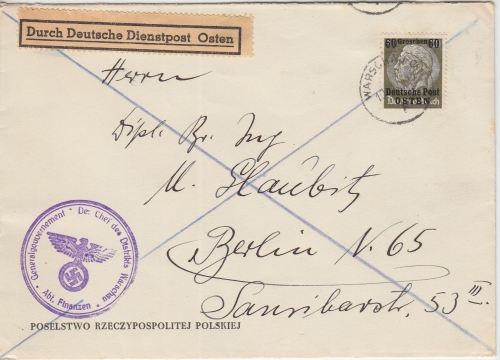 Durch Deutsche Dienstpost Osten
60 Groschen 60
Deutsche Post
OSTEN
WARSCH
Herrn
Dipl. Br. Ing
M. Glaubitz
Berlin N. 65
Sansibarstr. 53 III.
Generalgouvernement · Der Chef des Distrikts Warschau ·
Abt. Finanzen
POSELSTWO RZECZYPOSPOLITEJ POLSKIEJ